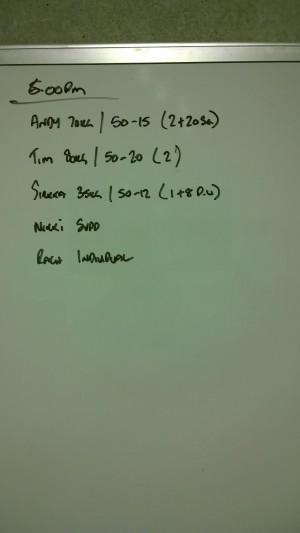 5:00pm
ANDY 70KG / 50-15 (2+20SQ)
TIM 80KG / 50-20 (2)
35KG / 50-12 (1+8 P.U)
NIKKI
RACH INDIVIDUAL